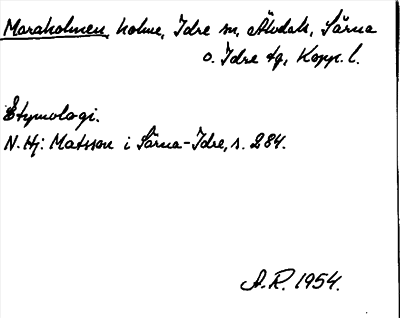 Maraholmen, holme, Idre sn, Älvdals, Särna
o. Idre tg, Kopp. l.
Etymologi.
N. Hj. Matsson i Särna-Idre, s. 284.
A.R. 1954.